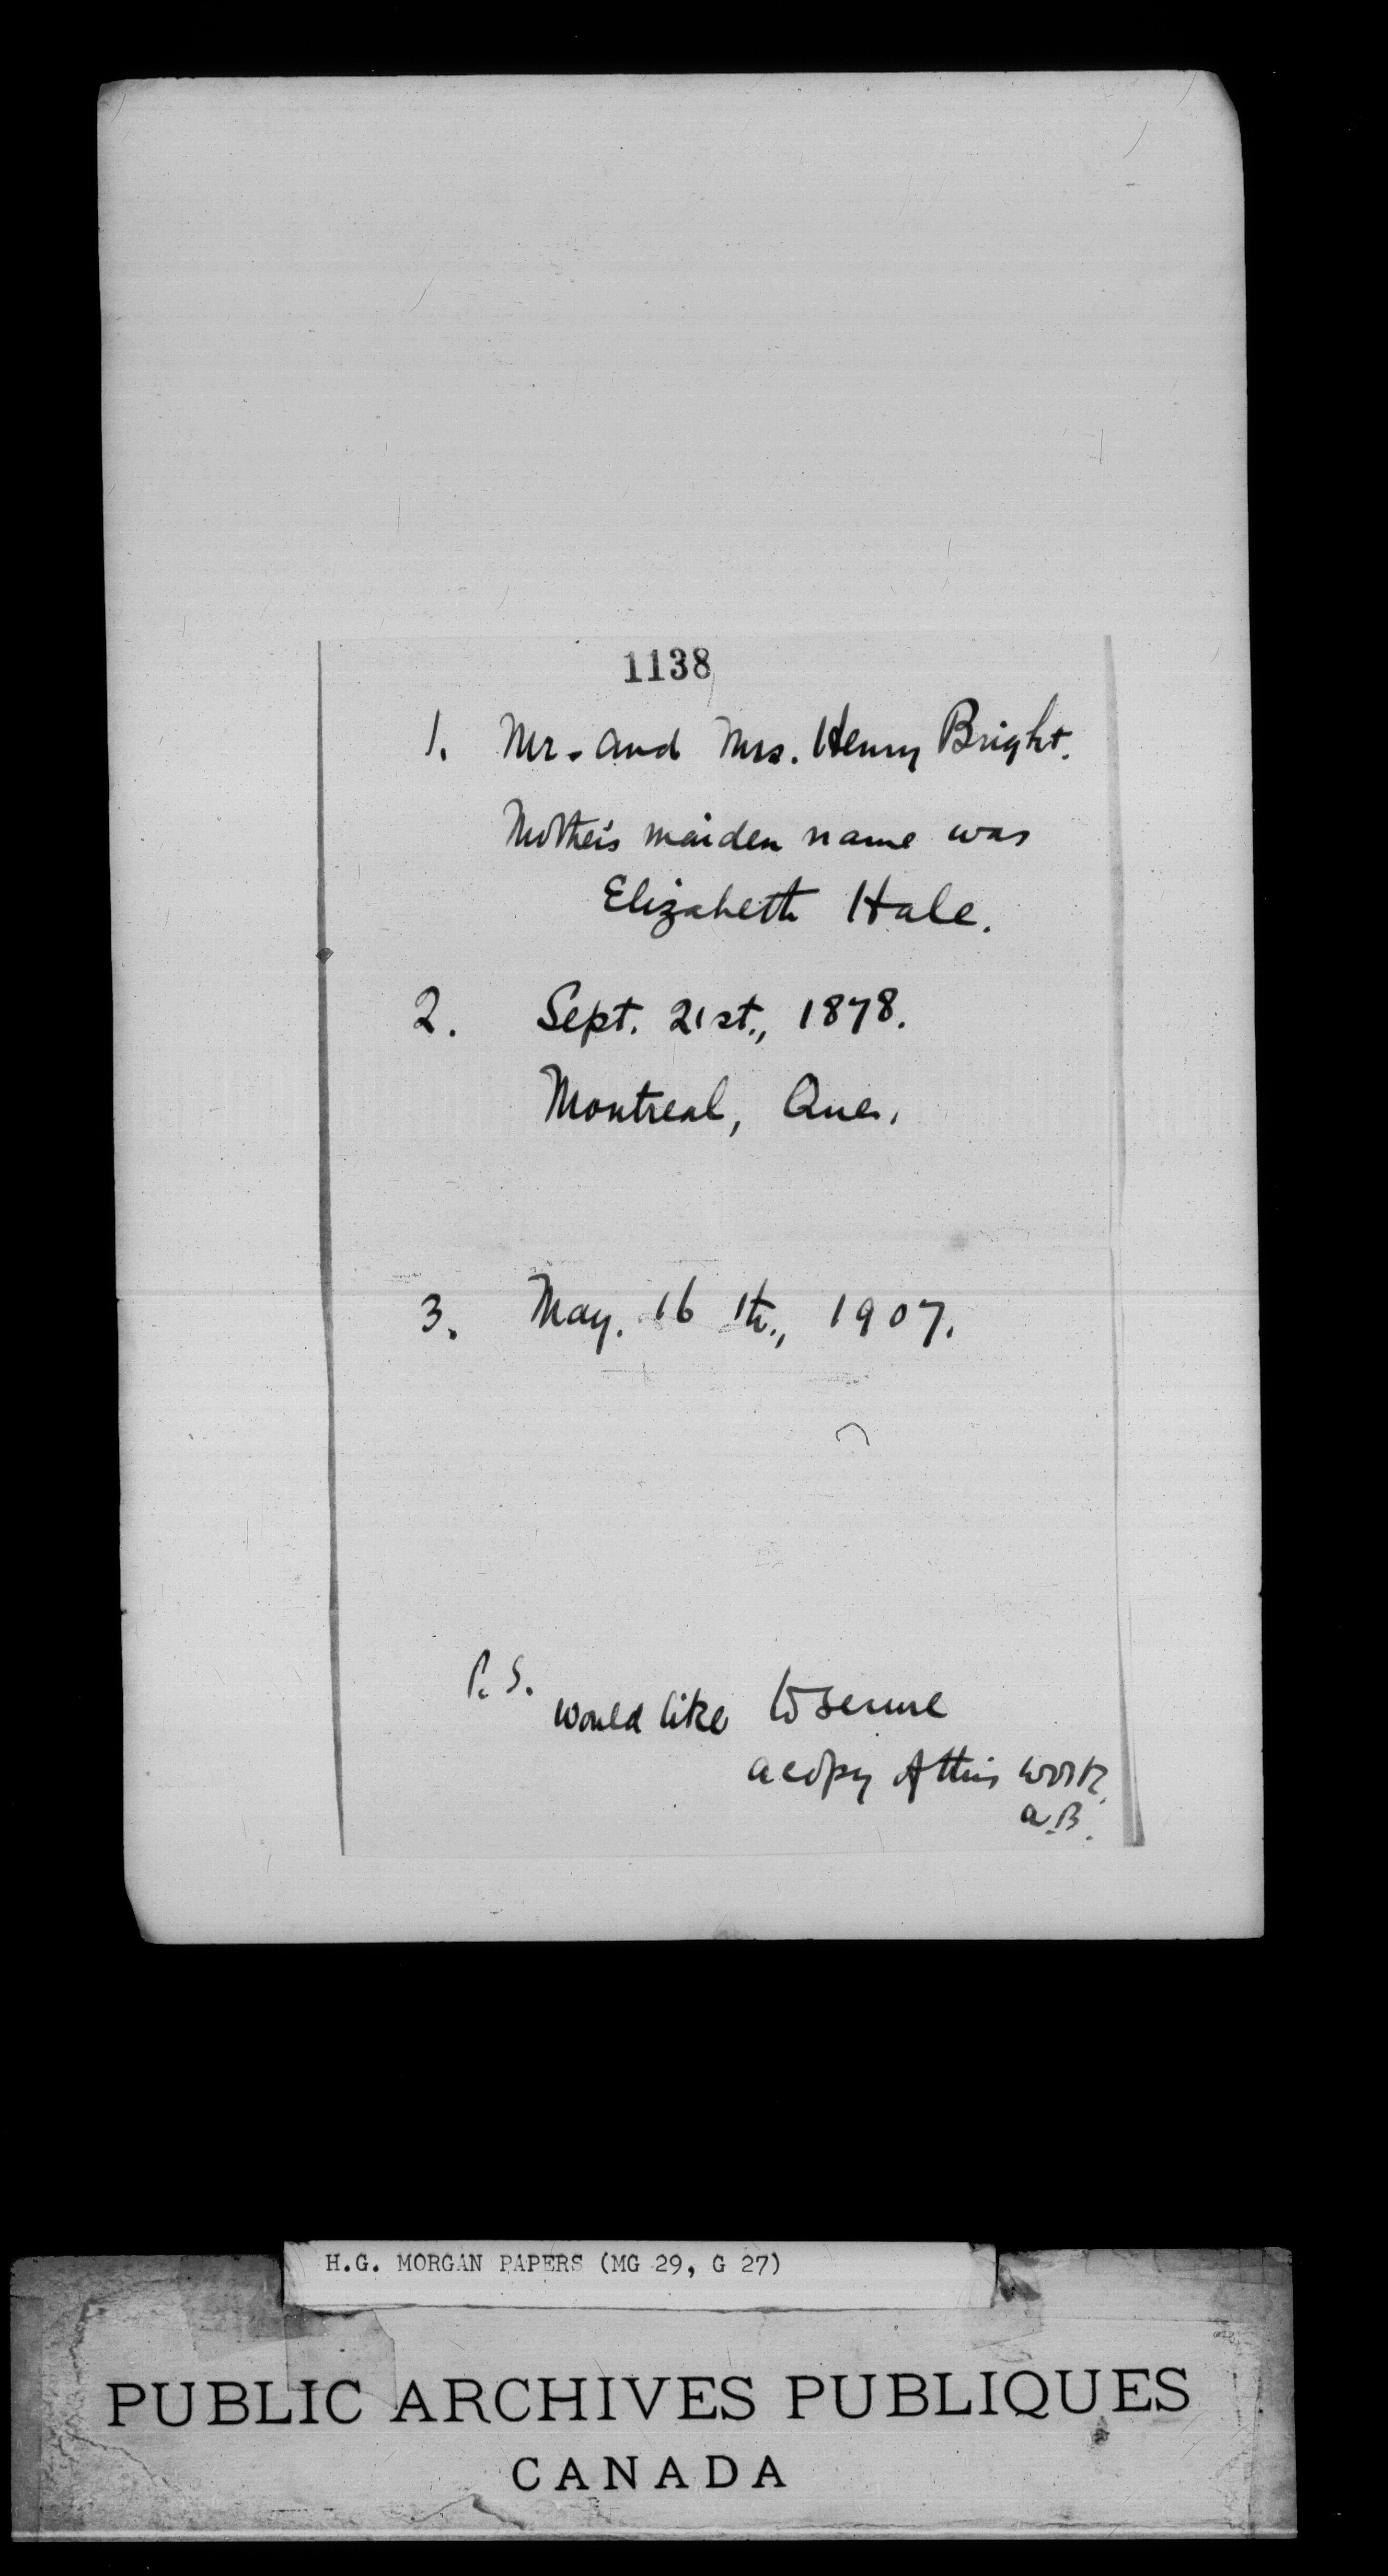 1138
1. Mr. and Mrs. Henry Bright.
Mother's maiden name was
Elizabeth Hale.
2. Sept. 21st., 1878.
Montreal, Que.
3. May. 16 th., 1907.
P.S.
would like to secure
a copy of this work.
a.B.
H.G. MORGAN PAPERS (MG 29, G 27)
PUBLIC ARCHIVES PUBLIQUES
CANADA